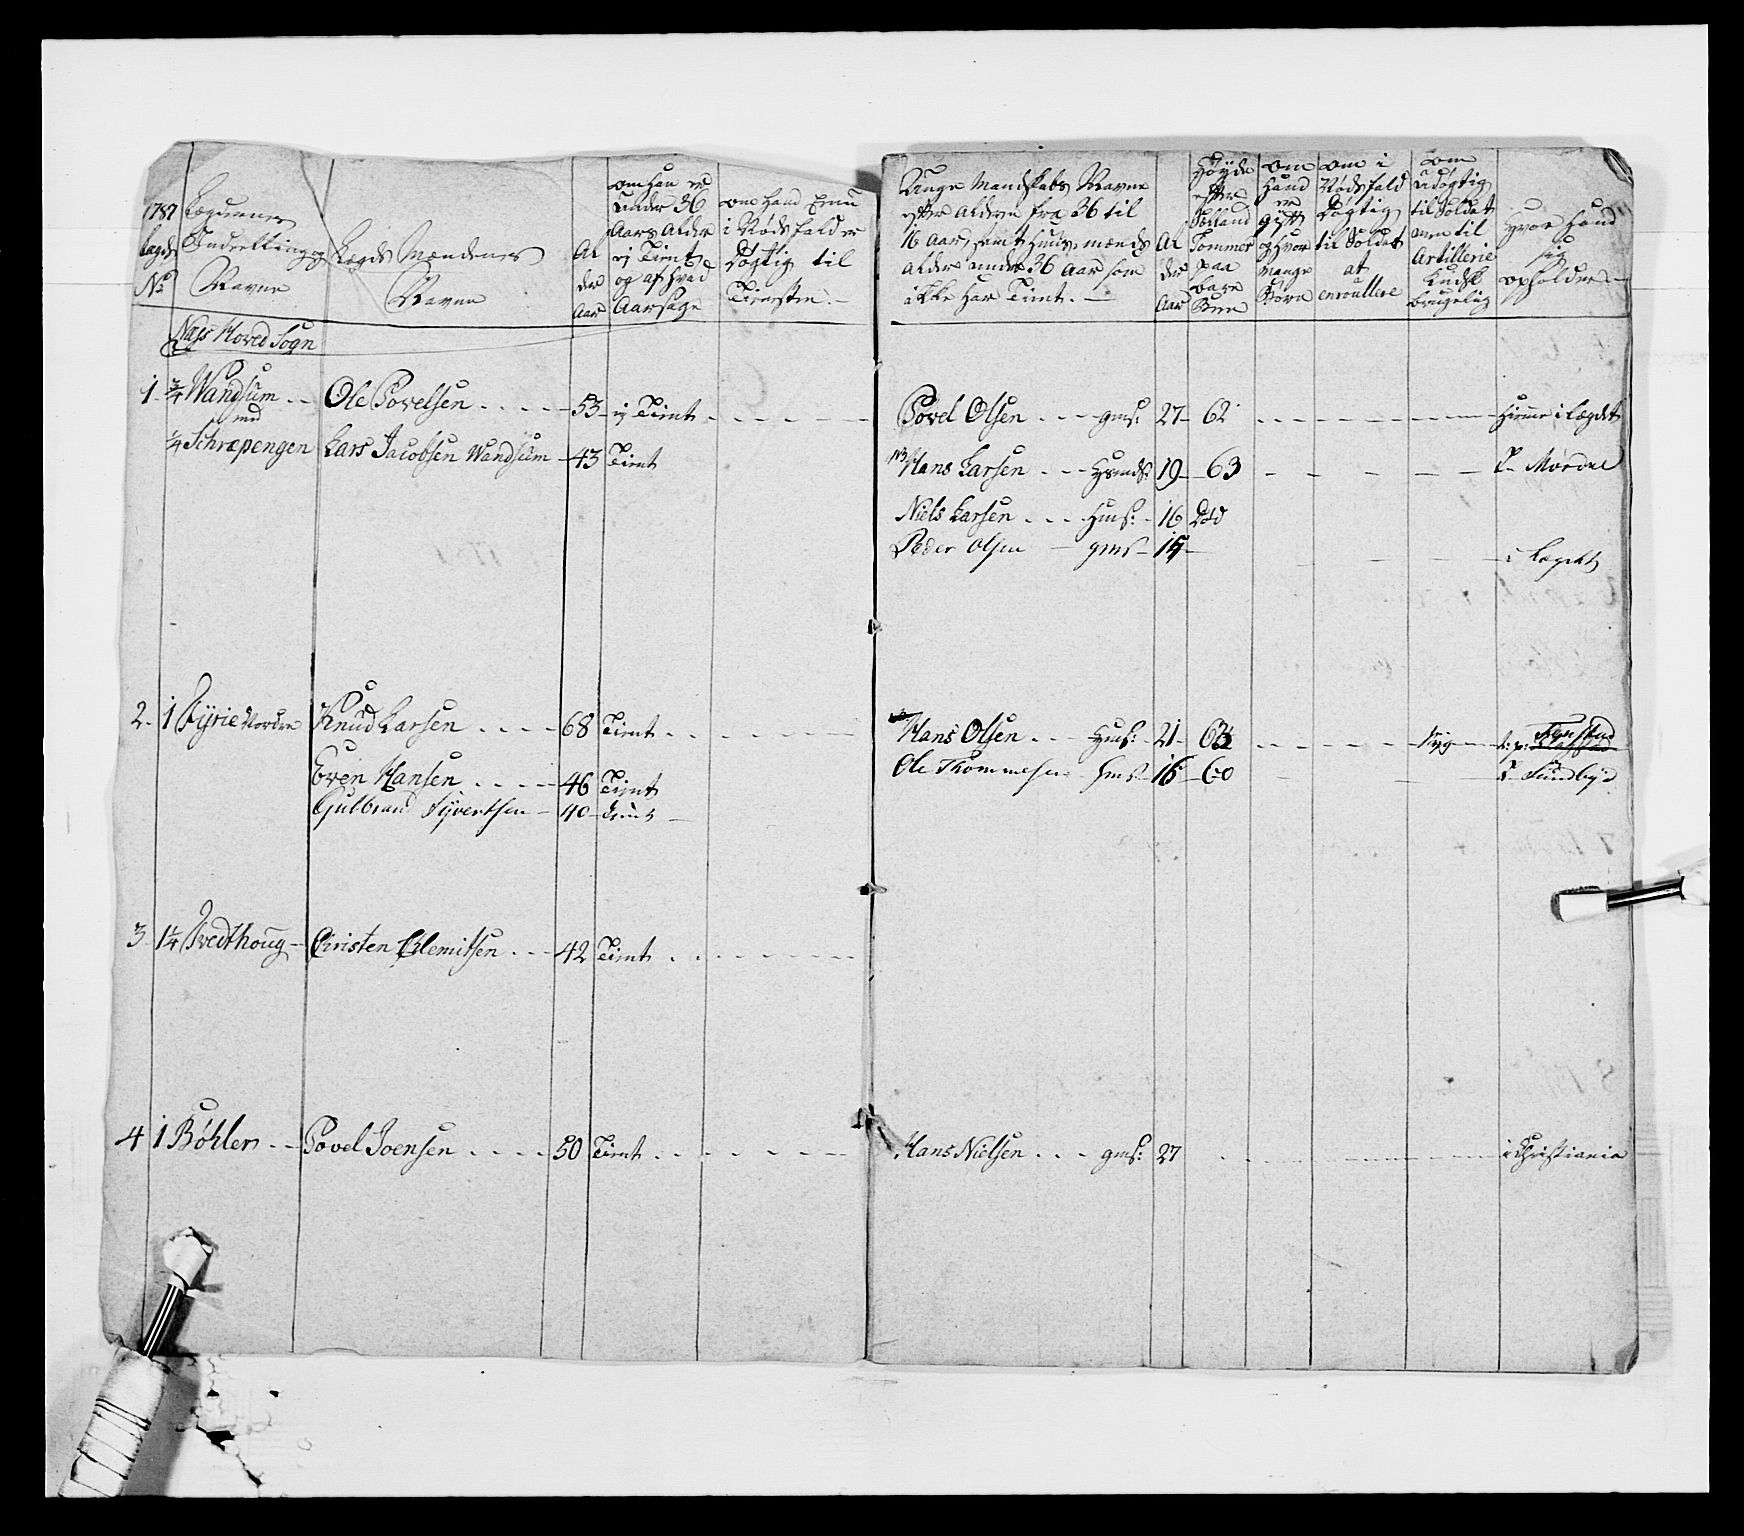 1787
Lægds
No
Lægdernes
Inddeelling og
Navne
Lægds Mændenes
Navne
Al
der
Aar
om han er
under 36
Aars Alder
ej Tient
og af hvad
Aarsage
om hand Ennu
i Nødsfald er
Døgtig til
Tienesten
Unge Mandskabs Navne
efter Alderen fra 36 til
16 Aar, samt huus, mænds
Alder under 36 Aar som
ikke har Tient.
Al
der
Aar
Høyde
efter
Siælland
Tommer
paa
bare
Been
om
Hand
er
gift
og hvor
mange
Børn
om i
Nødsfald
Døgtig
til Soldat
at
enroullere
om
Udøgtig
til Soldat
men til
Artillerie
Kudsk
brugelig
Hvor Hand
sig
opholder
Næss Hoved Sogn
1 3/4 Wandsum Ole Povelsen 53 ej Tient Povel Olsen gms: 27 62 Hiemme i Lægdet
med
1/4 Schræpengen Lars Jacobsen Wandsum 43 Tient Hans Larsen Hsmds: 19 63
Niels Larsen Hms: 16 Død
Peder Olsen gms 15 i Lægdet
2 1 Fyrie Nordre Knud Larsen 68 Tient Hans Olsen Hms: 21 syg
Even Hansen 46 Tient Ole Thommesen 16 60
Gulbrand Syvertsen 40 Tient
3 1 1/4 Tvedthoug Christen Clemitsen 42 Tient
4 1 Bøhler Povel Joensen 50 Tient Hans Nielsen gms: 27 i Christiania